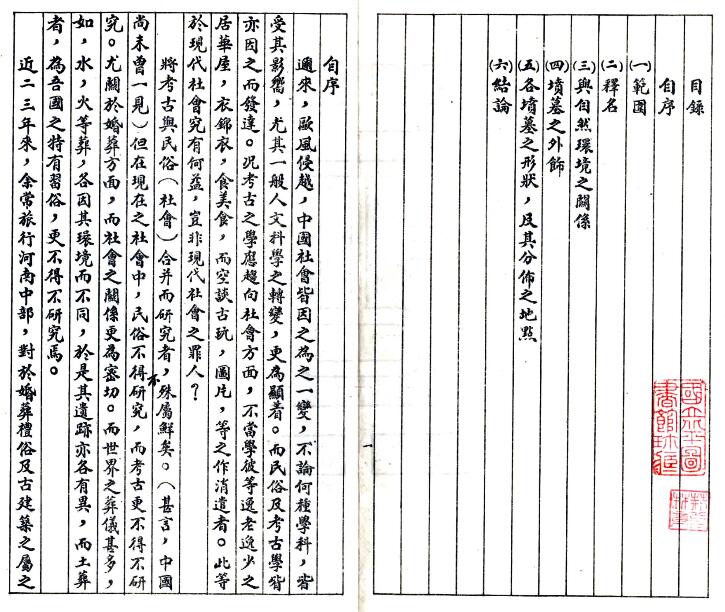 目錄
自序
(一)範圍
(二)釋名
(三)與自然環境之關係
(四)墳墓之外飾
(五)各墳墓之形狀，及其分佈之地點
(六)結論
國立北平圖書館珍藏
一
自序
邇來，歐風侵越，中國社會皆因之為之一變，不論何種學科，皆
受其影嚮，尤其一般人文科學之轉變，更為顯着。而民俗及考古學皆
亦因之而發達。況考古之學應趨向社會方面，不當學彼等逸老逸少之
居華屋，衣錦衣，食美食，而空談古玩，圖片，等之作消遣者。此等
於現代社會究有何益，豈非現代社會之罪人？
將考古與民俗（社會）合并而研究者，殊屬鮮矣。（甚言，中國
尚未曾一見）但在現在之社會中，民俗不得不研究，而考古更不得不研
究。尤關於婚葬方面，而社會之關係更為密切。而世界之葬儀甚多，
如，水，火等葬，各因其環境而不同，於是其遺跡亦各有異，而土葬
者，為吾國之特有習俗，更不得不研究焉。
近二三年來，余常旅行河南中部，對於婚葬禮俗及古建築之屬之